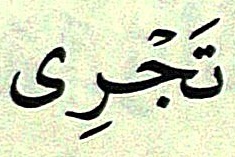 تَجْرِى